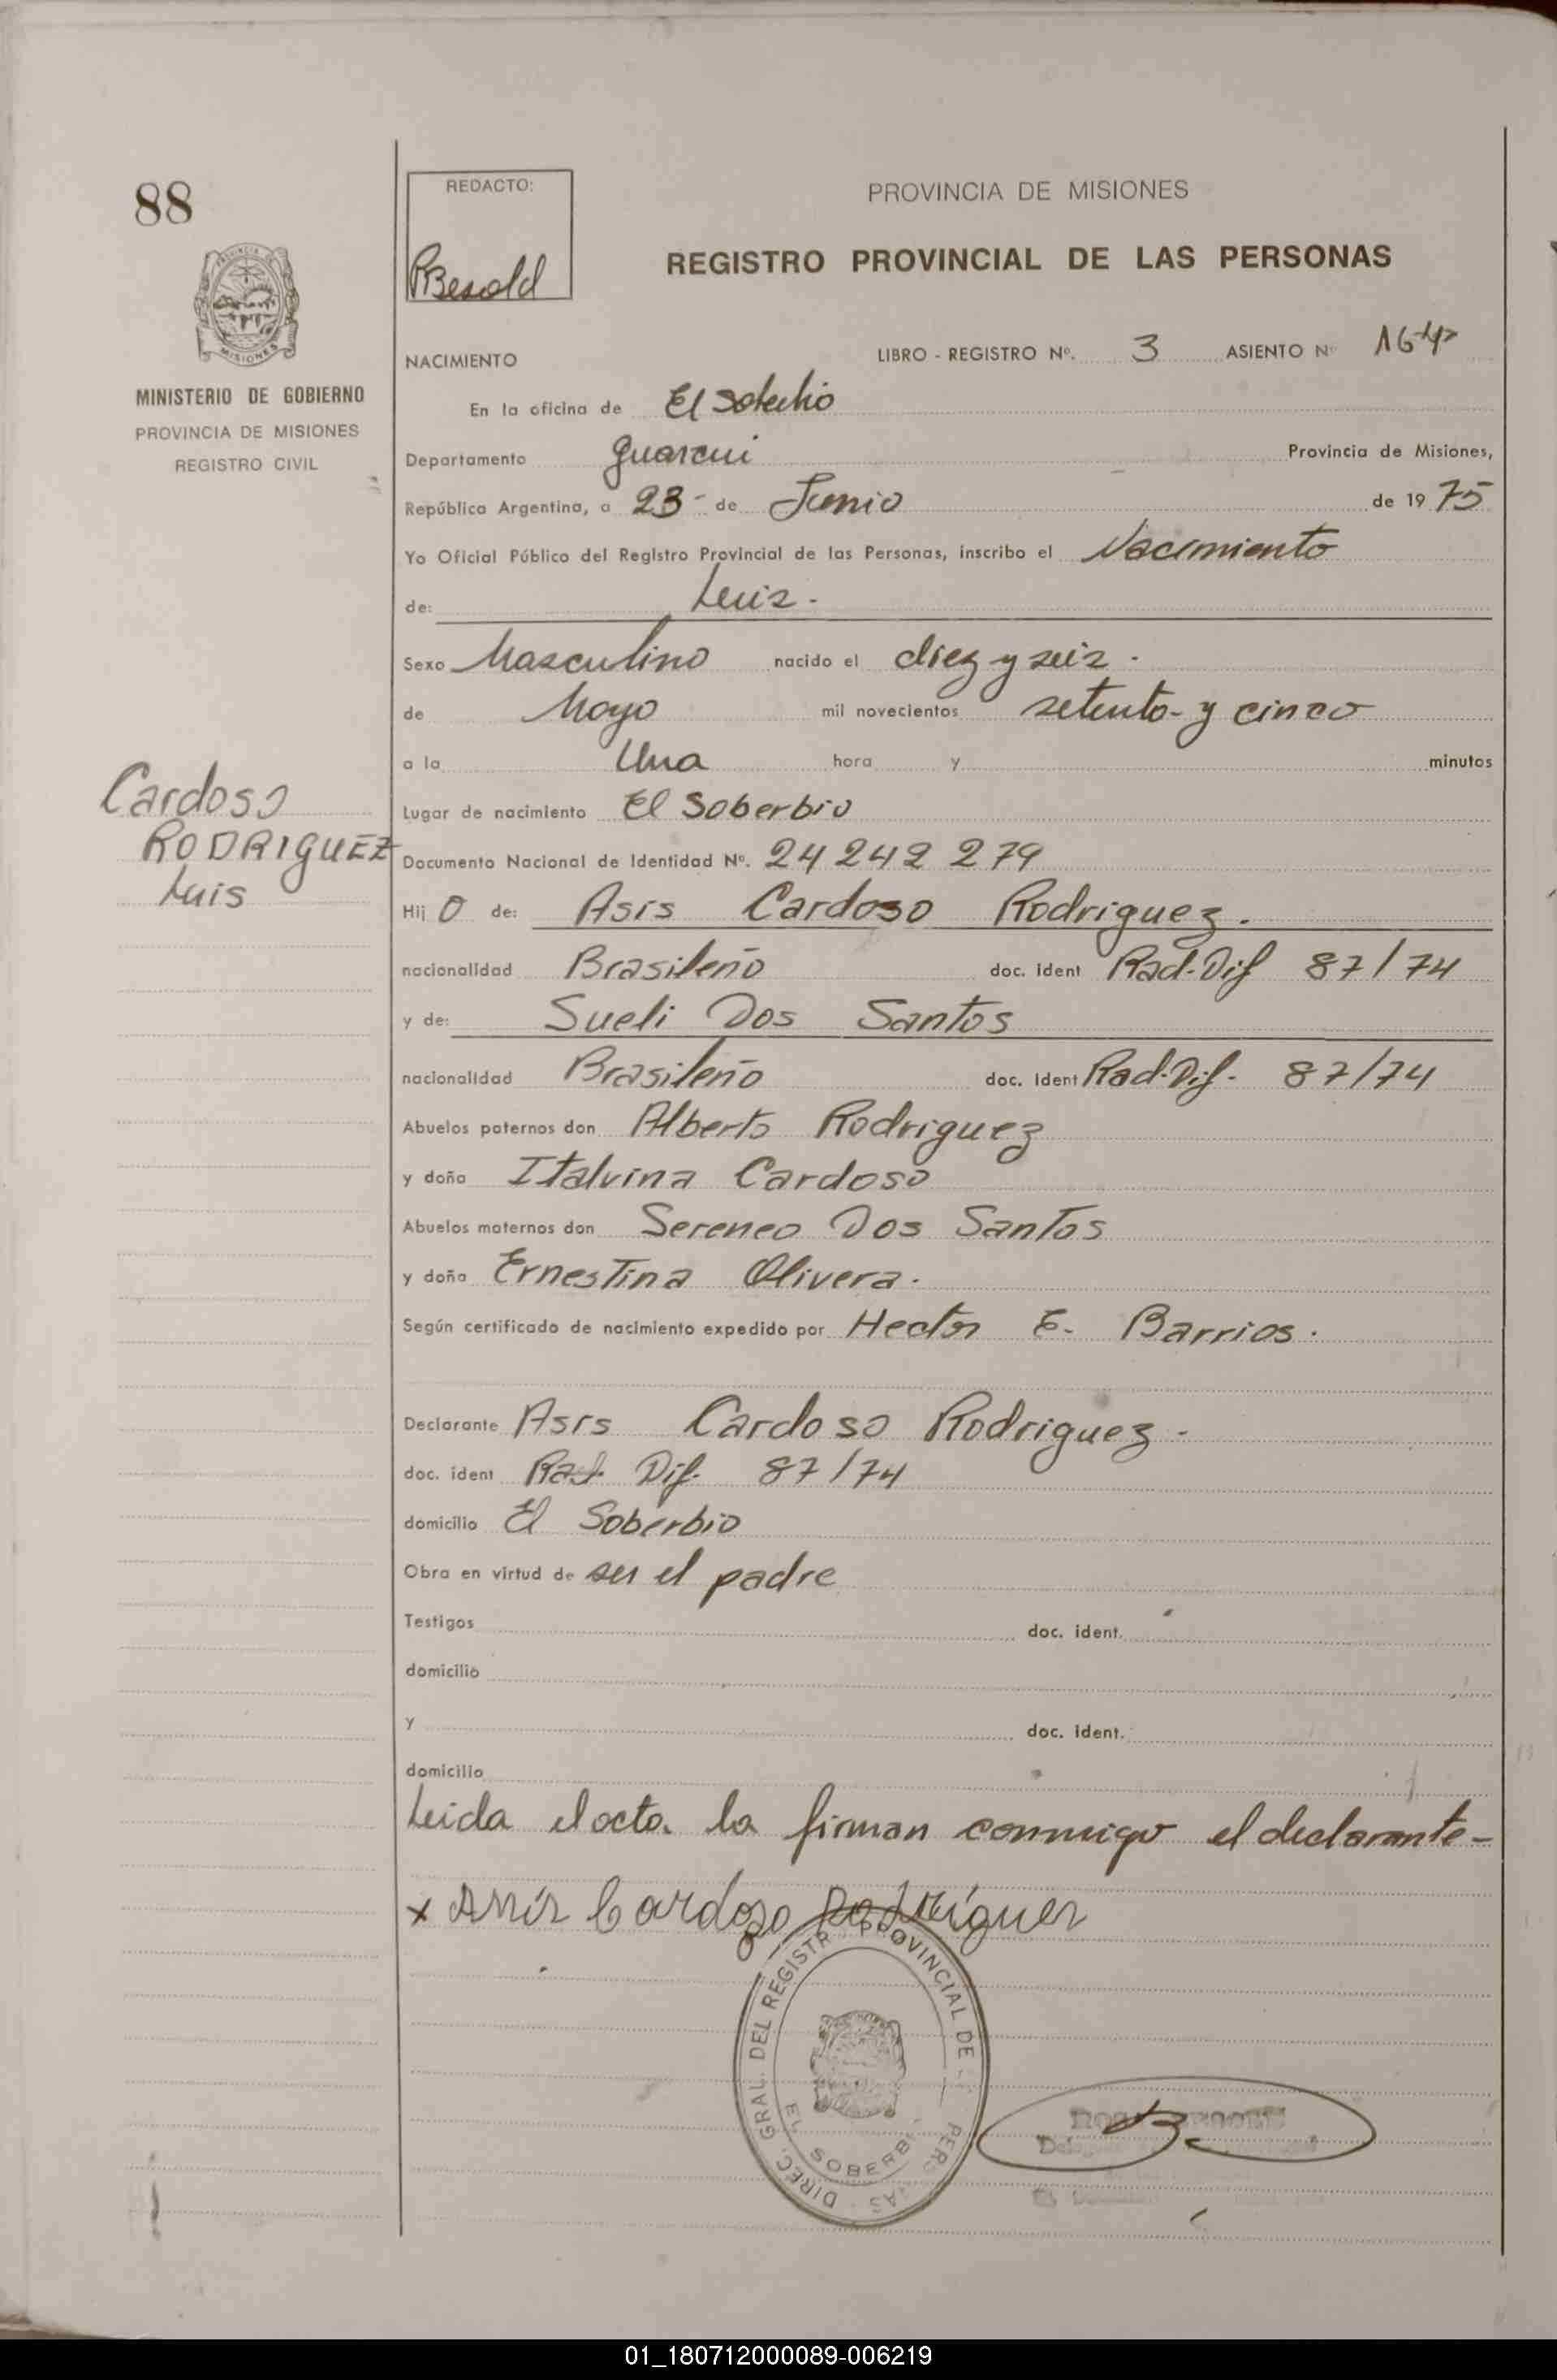 88
PROVINCIA DE
MISIONES
MINISTERIO DE GOBIERNO
PROVINCIA DE MISIONES
REGISTRO CIVIL
Cardoso
RODRIGUEZ
Luis
REDACTO:
PROVINCIA DE MISIONES
REGISTRO PROVINCIAL DE LAS PERSONAS
NACIMIENTO
LIBRO - REGISTRO Nº. 3 ASIENTO Nº
En la oficina de El
Departamento Guarani Provincia de Misiones,
República Argentina, a 23 - de Junio de 1975
Yo Oficial Público del Registro Provincial de las Personas, inscribo el Nacimiento
de: Luis.
Sexo Masculino nacido el diez y seis.
de Mayo mil novecientos setenta y cinco
a la Una hora y minutos
Lugar de nacimiento El Soberbio
Documento Nacional de Identidad Nº. 24 242 279
Hijo de: Asis Cardoso Rodriguez.
nacionalidad Brasileño doc. ident Rad. Dif 87/74
y de: Sueli Dos Santos
nacionalidad Brasileño doc. ident Rad. Dif. 87/74
Abuelos paternos don Alberto Rodriguez
y doña Italvina Cardoso
Abuelos maternos don Sereneo Dos Santos
y doña Ernestina Olivera.
Según certificado de nacimiento expedido por Hector E. Barrios.
Declarante Asis Cardoso Rodriguez -
doc. ident Rad. Dif. 87/74
domicilio El Soberbio
Obra en virtud de ser el padre
Testigos doc. ident.
domicilio
y doc. ident.
domicilio
Leida el acta la firman conmigo el declarante -
x Assis Cardozo Rodriguez
DIREC. GRAL. DEL REGISTR PROVINCIAL DE PERS NAS
EL SOBERB
01_180712000089-006219